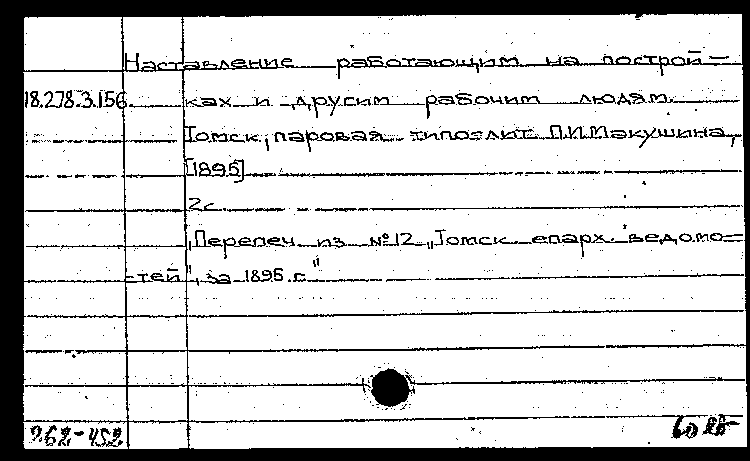 Наставление работающим на построй-
18.278.3.156. ках и другим рабочим людям.
Томск, паровая типо-лит. П.И.Макушина,
[1895]
2с.
"Перепеч. из №12 "Томск. епарх. ведомо-
стей", за 1895 г."
262-452